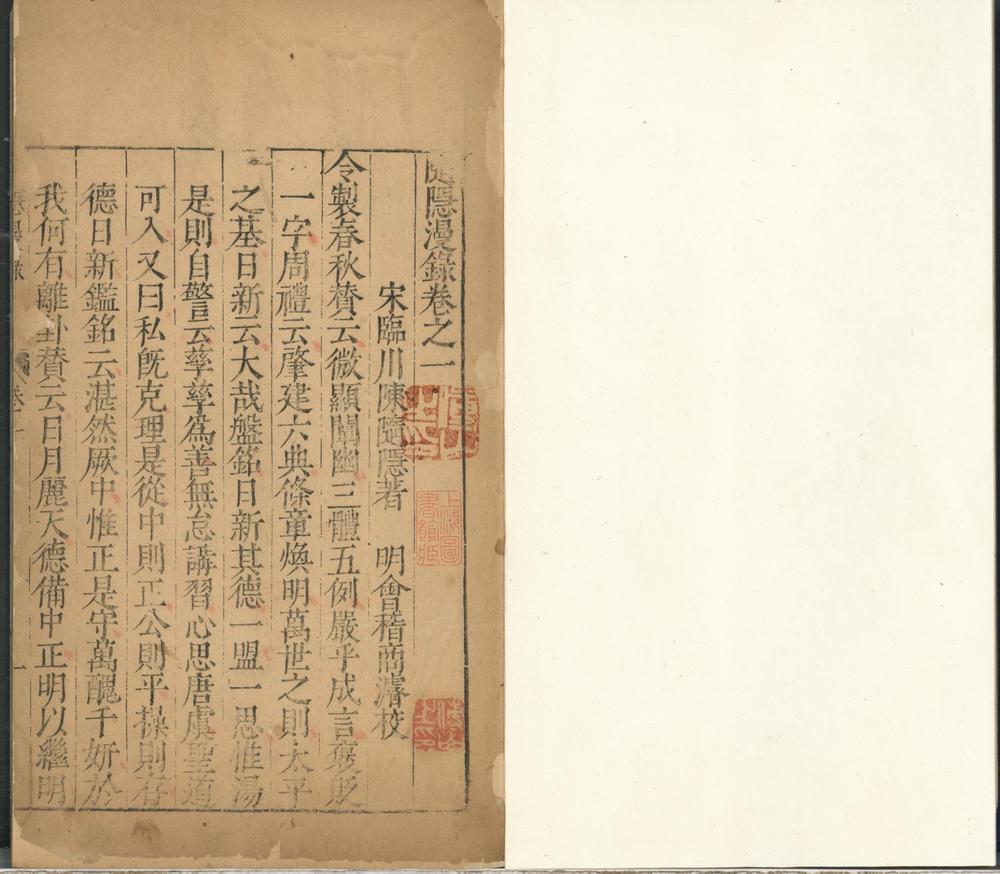 隨隱漫錄卷之一
宋臨川陳隨隱著　明會稽商濬校
令製春秋賛云微顯闡幽三體五例嚴乎成言褒貶
一字周禮云肇建六典條章煥明萬世之則太平
之基日新云大哉盤銘日新其德一盟一思惟湯
是則自警云孳孳爲善無怠講習心思唐虞聖道
可入又曰私旣克理是從中則正公則平操則存
德日新鑑銘云湛然厥中惟正是守萬醜千妍於
我何有離卦賛云日月麗天德備中正明以繼明
上海圖
書館藏